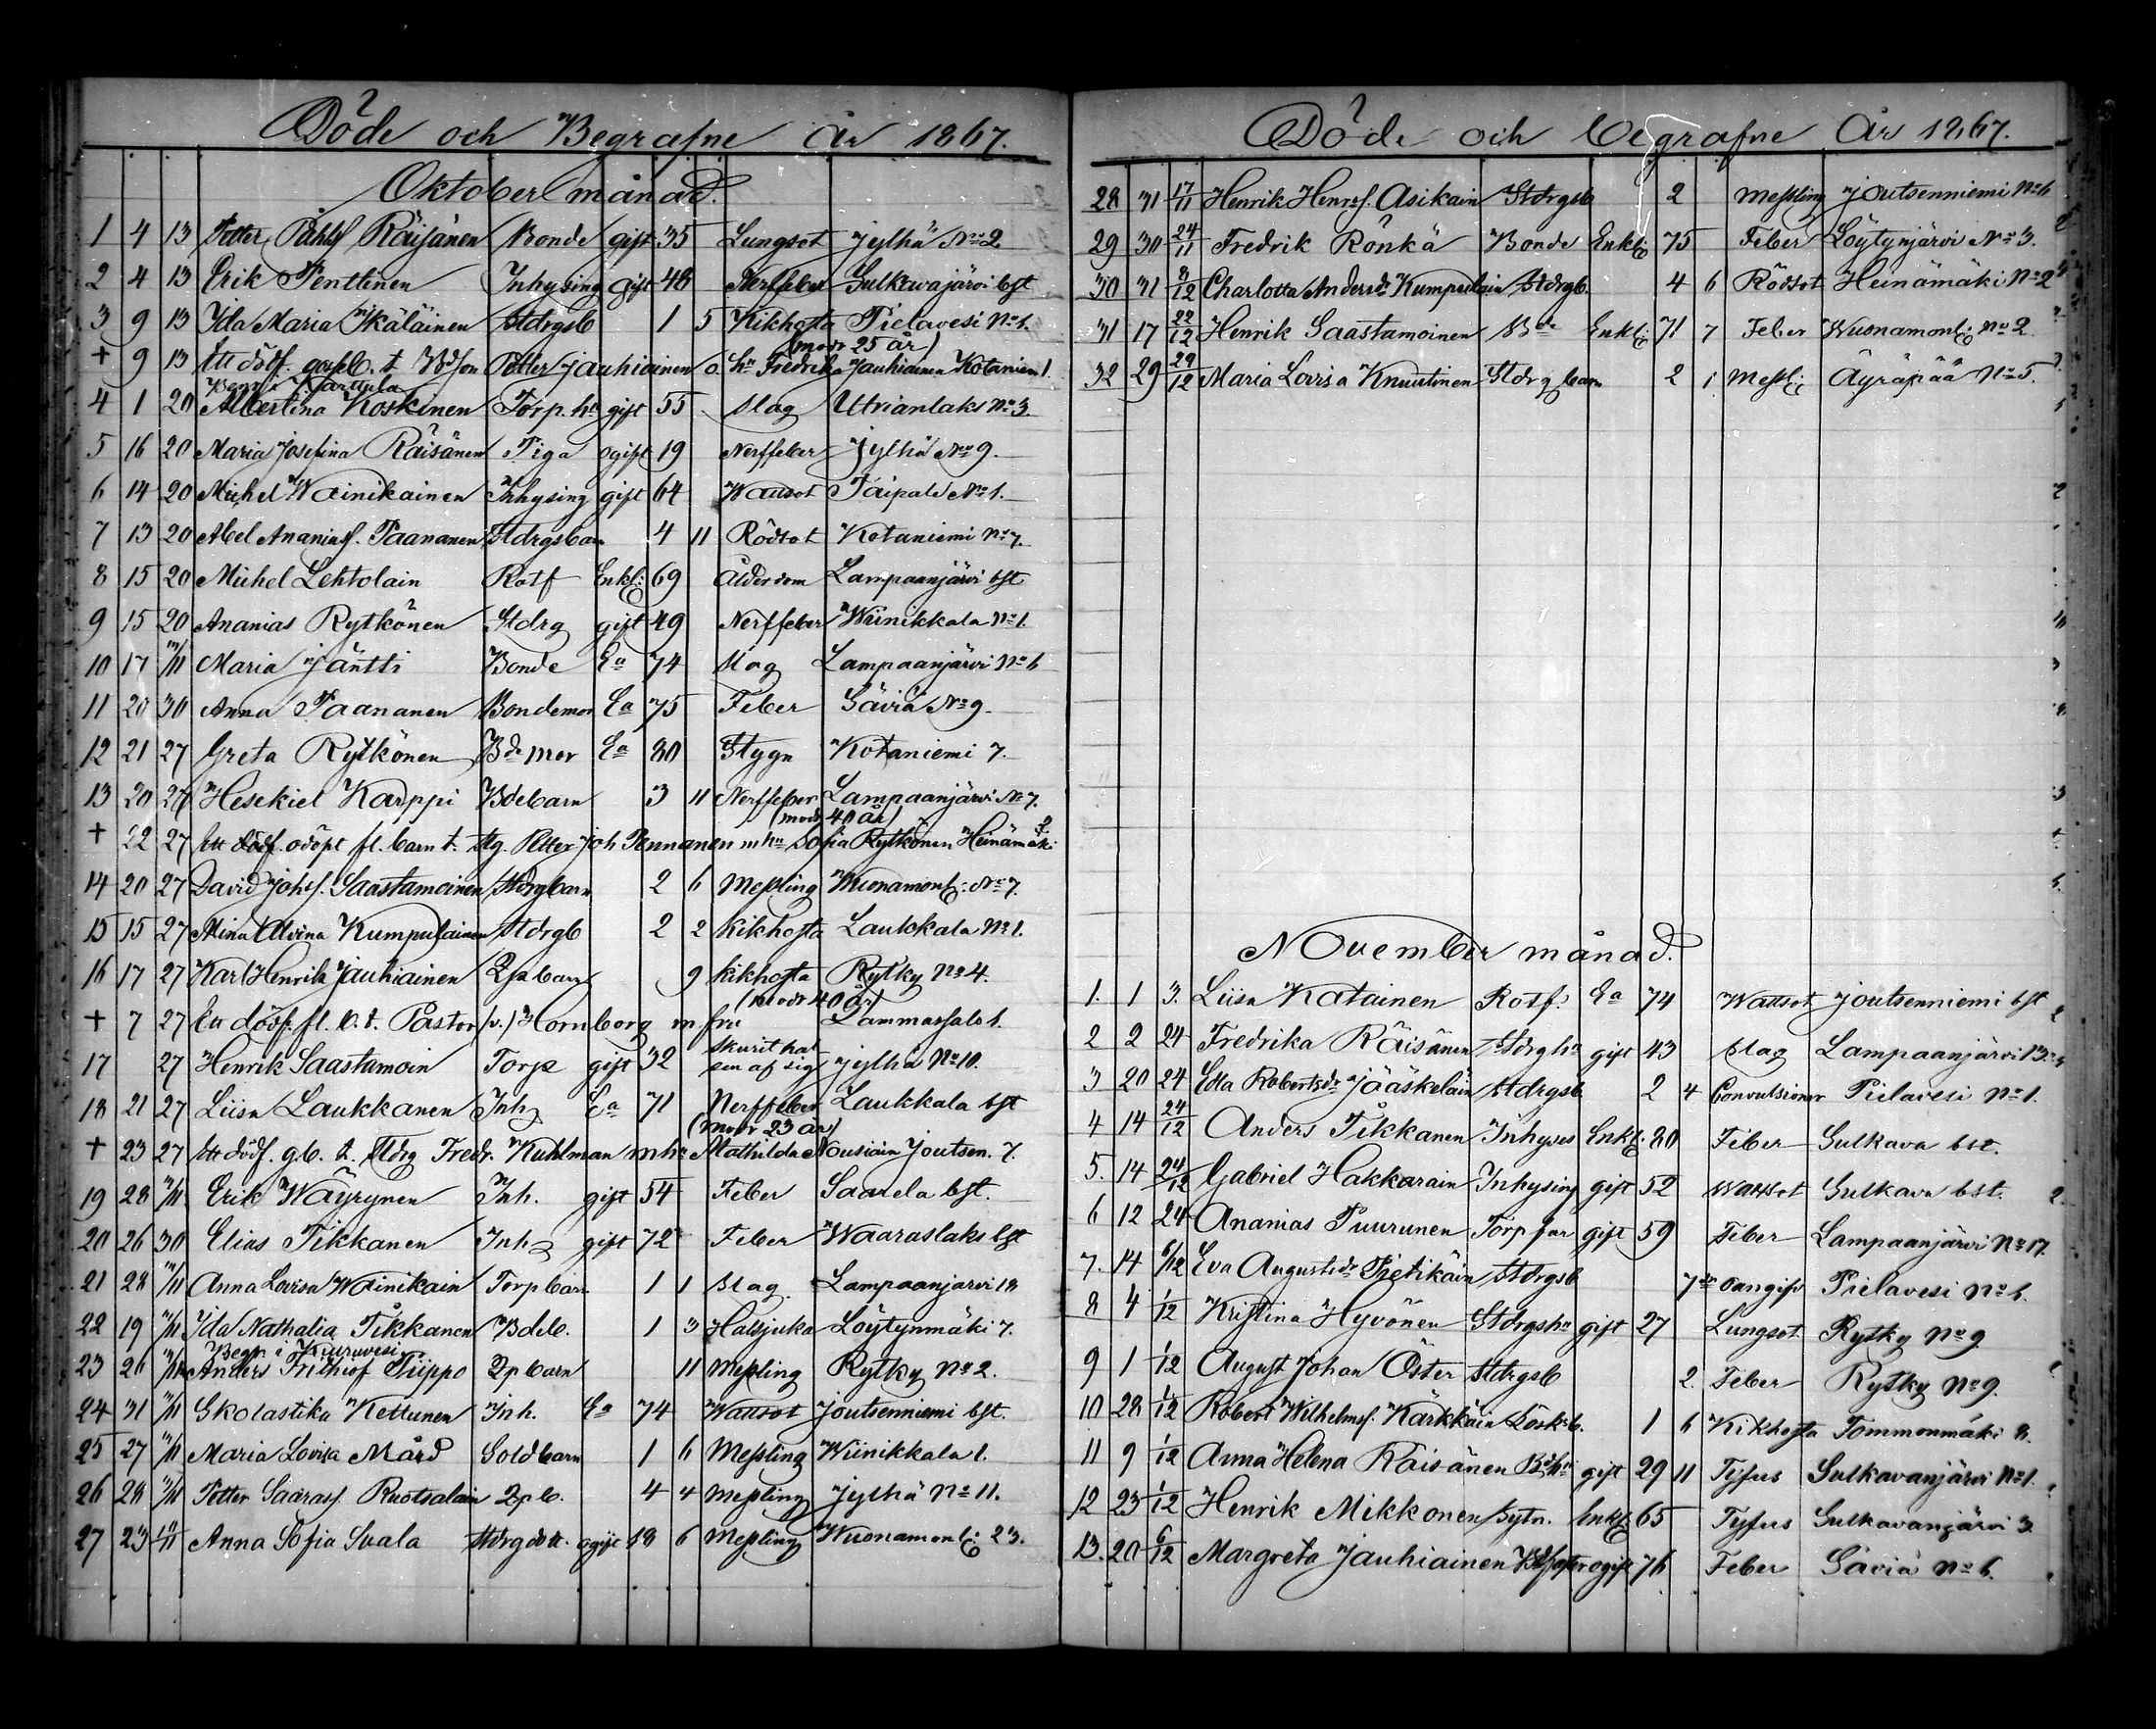 Döde och Begrafne År 1867.
Oktober månad.
1 4 13 Petter Påhlsf Räisänen Bonde gift 35 Lungsot Jylhä No 2
2 4 13 Erik Penttinen Inhysing gift 48 Nerffeber Sulkavajärvi bst
3 9 13 Ida Maria Ikäläinen Stdrgsb 1 5 Kikhosta Pielavesi No 1.
(modr 25 år)
+ 9 13 Ett dödf. gosseb. t. Bdson Petter Jauhiainen o. hu Fredrika Jauhiainen Kotaniemi 1.
Begr. i Karttula
4 1 20 Albertina Koskinen Torp. hu gift 55 Slag Utrianlaks No 3.
5 16 20 Maria Josefina Räisänen Piga ogift 19 Nerffeber Jylhä No 9.
6 14 20 Michel Wainikainen Inhysing gift 64 Wattsot Taipale No 1.
7 13 20 Abel Ananiasf. Paananen Stdrgsbarn 4 11 Rödsot Kotaniemi No 7.
8 15 20 Michel Lehtolain Rotf Enkl: 69 Ålderdom Lampaanjärvi bst
9 15 20 Ananias Rytkönen Stdrg gift 49 Nerffeber Wiinikkala No 1.
10 17 3/11 Maria Jäntti Bonde Ea 74 Slag Lampaanjärvi No 6
11 20 30 Anna Paananen Bondemor Ea 75 Feber Säviä No 9.
12 21 27 Greta Rytkönen Bde mor Ea 80 Stygn Kotaniemi 7.
13 20 27 Hesekiel Karppi Bdebarn 3 11 Nerffeber Lampaanjärvi No 7.
(modr 40 år)
+ 22 27 Ett dödf. odöpt fl. barn t. Stg. Petter Joh Pennanen m hu Sofia Rytkönen Heinämäki
14 20 27 David Johsf. Saastamoinen Stdrgbarn 2 6 Messling Wuonamonl: No 7.
15 15 27 Mina Alvina Kumpulainen Stdrgb 2 2 Kikhosta Laukkala No 1.
16 17 27 Karl Henrik Jauhiainen Lpbarn 9 kikhosta Rytky No 4.
(modr 40 år)
+ 7 27 En dödf. fl. b. t. Pastor (v.) Hornborg m fru Lammassalo 1.
17 27 Henrik Saastamoin Torp gift 32 skurit halsen af sig Jylhä No 10.
18 21 27 Liisa Laukkanen Inh Ea 71 Nerffeber Laukkala bst
(modr 23 år)
+ 23 27 Ett dödf. g.b. t. Stdrg Fredr. Kuhlman m hu Mathilda Nousiain Joutsen. 7.
19 28 3/11 Erik Wäyrynen Inh. gift 54 Feber Saarela bst.
20 26 30 Elias Tikkanen Inh gift 72 Feber Waaraslaks bst
21 28 3/11 Anna Lovisa Wainikain Torpbarn 1 1 Slag. Lampaanjärvi 18
22 19 3/11 Ida Nathalia Tikkanen Bdeb. 1 3 Halssjuka Löytynmäki 7.
Begr. i Kiuruvesi
23 26 3/11 Anders Frithiof Tiippo Lpbarn 11 Messling Rytky No 2.
24 31 3/11 Skolastika Kettunen Inh. Ea 74 Wattsot Joutsenniemi bst.
25 27 3/11 Maria Lovisa Mård Soldbarn 1 6 Messling Wiinikkala 1.
26 28 3/11 Petter Saarasf. Ruotsalain Lpb. 4 4 Messling Jylhä No 11.
27 23 10/11 Anna Sofia Svala Stdrgdott. ogift 18 6 Messling Wuonamonl: 23.
Döde och begrafne År 1867.
28 31 17/11 Henrik Henrsf. Asikain Stdrgsb 2 Messling Joutsenniemi No 6
29 30 24/11 Fredrik Rönkä Bonde Enkl: 75 Feber Löytynjärvi No 3.
30 31 8/12 Charlotta Andersdr Kumpulain Stdrgb. 4 6 Rödsot Heinämäki No 2
31 17 22/12 Henrik Saastamoinen Bde Enkl: 71 7 Feber Wuonamonl: No 2
32 29 29/12 Maria Lovisa Knuutinen Stdrgbarn 2 1 Messl: Äyräpää No 5.
November månad.
1. 1 3. Liisa Katainen Rotf. Ea 74 Wattsot Joutsenniemi bst
2 2 24 Fredrika Räisänen Stdrghu gift 43 Slag Lampaanjärvi 13
3 20 24 Eda Robertsdr Jääskeläin Stdrgsb 2 4 Convulsioner Pielavesi No 1.
4 14 24/12 Anders Tikkanen Inhyses Enkl. 80 Feber Sulkava bst.
5. 14 24/12 Gabriel Hakkarain Inhysing gift 52 Wattsot Sulkava bst.
6 12 24 Ananias Puurunen Torpfar gift 59 Feber Lampaanjärvi No 17.
7. 14 6/12 Eva Augustsdr Pietikäin Stdrgsb 7 oangifv Pielavesi No 6.
8 4 1/12 Kristina Hyvönen Stdrgshu gift 27 Lungsot Rytky No 9
9 1 1/12 August Johan Öster Stdrgsb 2. Feber Rytky No 9.
10 28 1/12 Robert Wilhelmsf. Kärkkäin Löskb. 1 6 Kikhosta Tommonmäki 8.
11 9 1/12 Anna Helena Räisänen Bdhu gift 29 11 Tyfus Sulkavanjärvi No 1.
12 23 1/12 Henrik Mikkonen Sytn. Enkl: 65 Tyfus Sulkavanjärvi 3.
13. 20 6/12 Margreta Jauhiainen Bdsyster ogift 76 Feber Säviä No 6.